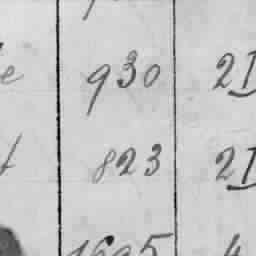 e 930 2I
t 823 2I
1695 4